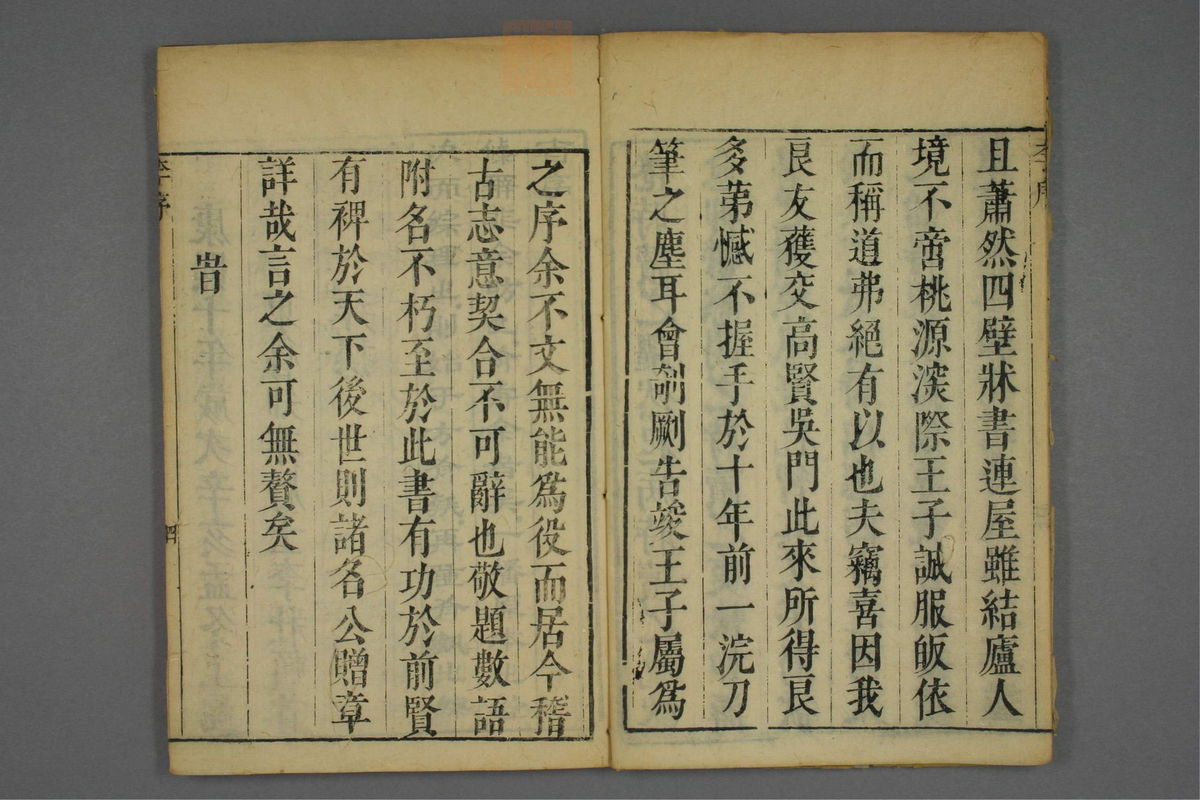 且蕭然四壁牀書連屋雖結廬人
境不啻桃源深際王子誠服皈依
而稱道弗絕有以也夫竊喜因我
良友獲交高賢吳門此來所得良
多苐憾不握手於十年前一浣刀
筆之塵耳會剞劂告竣王子屬為
之序余不文無能為役而居今稽
古志意契合不可辭也敬題數語
附名不朽至於此書有功於前賢
有裨於天下後世則諸名公贈章
詳哉言之余可無贅矣
旹
李序
四